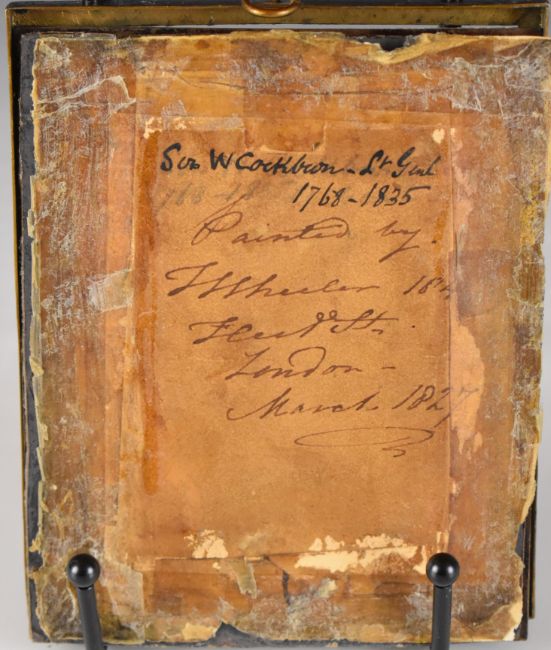 Sir W Cockburn - Lt Genl
1768-1835
Painted by.
T Wheeler 184
Fleet St.
London -
March 1827